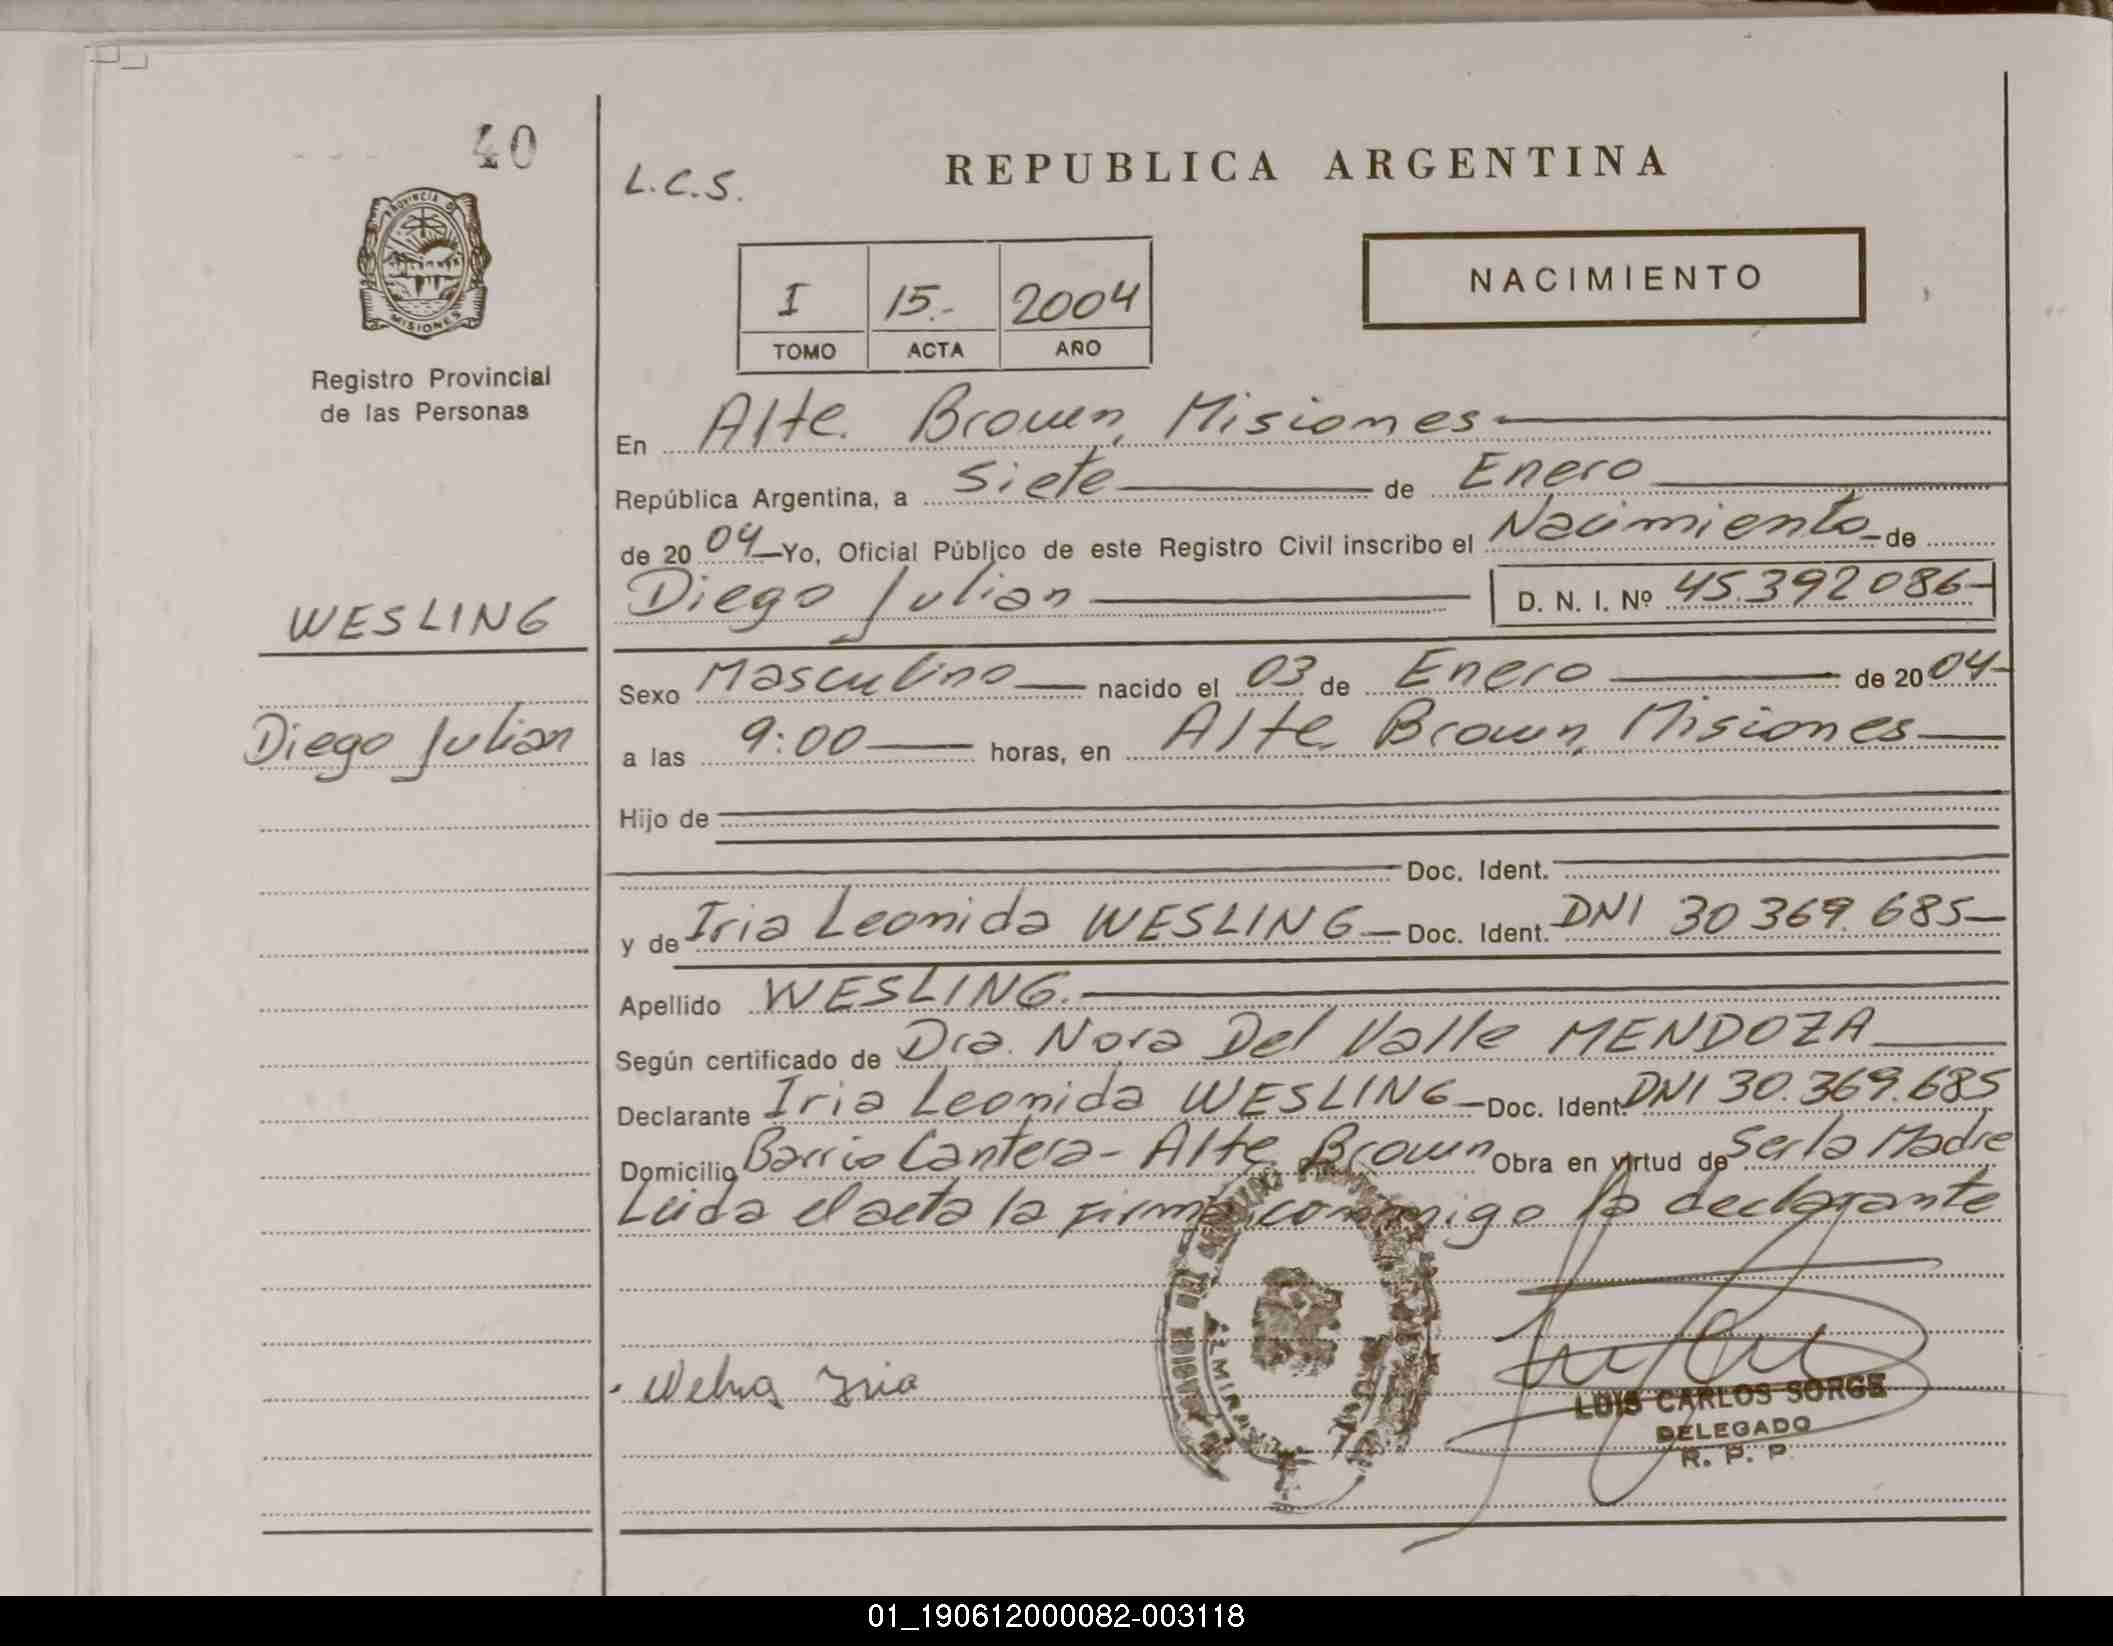 40
PROVINCIA DE
MISIONES
Registro Provincial
de las Personas
WESLING
Diego Julian
L.C.S.
REPUBLICA ARGENTINA
NACIMIENTO
I 15.- 2004
TOMO ACTA AÑO
En Alte. Brown, Misiones
República Argentina, a Siete de Enero
de 2004 Yo, Oficial Público de este Registro Civil inscribo el Nacimiento de
Diego Julian D. N. I. Nº 45.392086-
Sexo Masculino nacido el 03 de Enero de 2004-
a las 9:00 horas, en Alte. Brown, Misiones
Hijo de
Doc. Ident.
y de Iria Leonida WESLING Doc. Ident. DNI 30 369.685-
Apellido WESLING.
Según certificado de Dra. Nora Del Valle MENDOZA
Declarante Iria Leonida WESLING Doc. Ident. DNI 30.369.685
Domicilio Barrio Cantera - Alte. Brown Obra en virtud de Ser la Madre
Leida el acta la firma conmigo la declarante
Iria
LUIS CARLOS SORGE
DELEGADO
R. P. P.
01_190612000082-003118